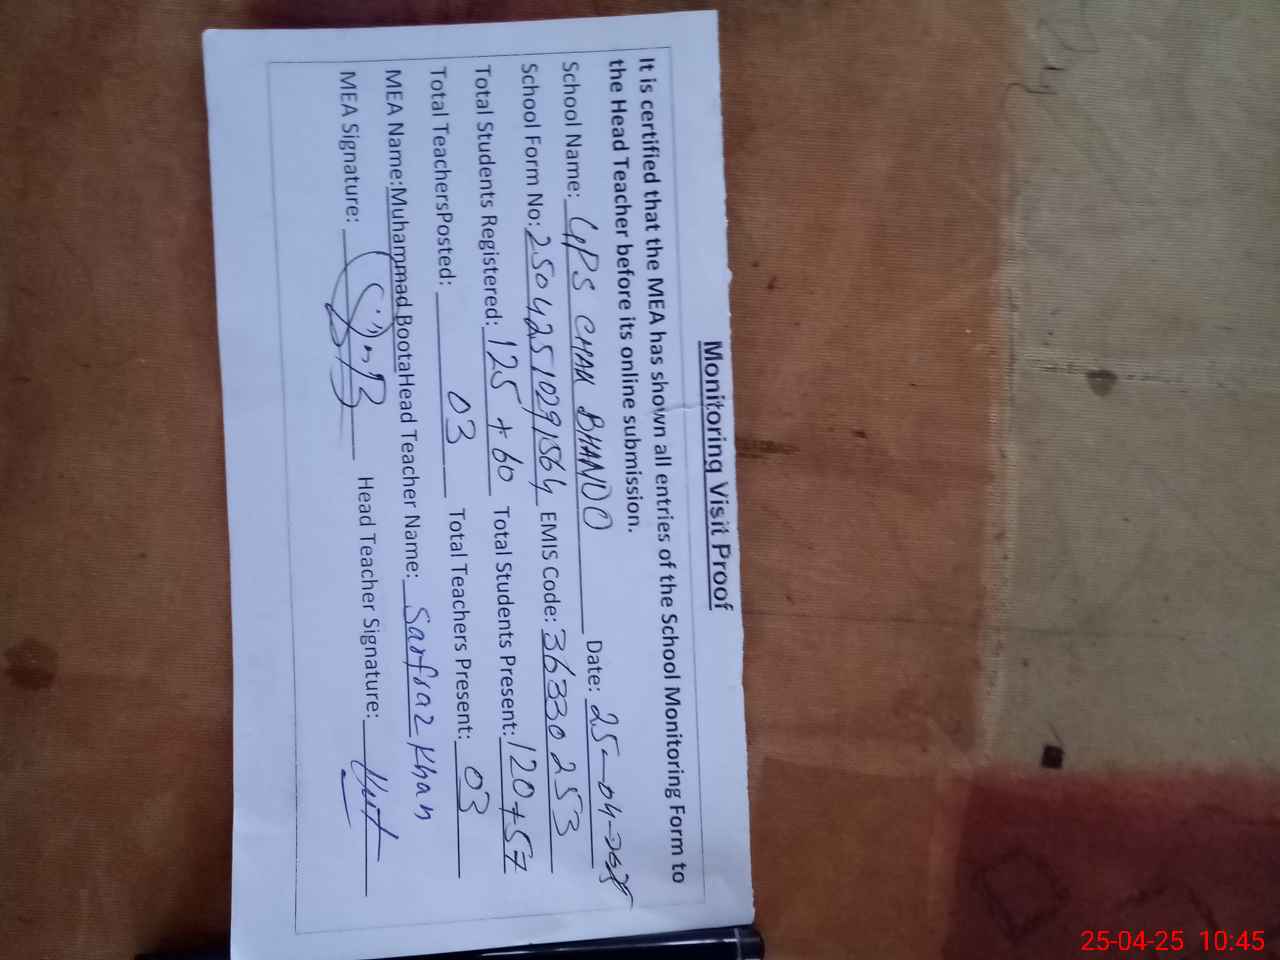 Monitoring Visit Proof
It is certified that the MEA has shown all entries of the School Monitoring Form to
the Head Teacher before its online submission.
School Name: GPS CHAK BHANDO Date: 25-04-2025
School Form No: 25042510291564 EMIS Code: 36330253
Total Students Registered: 125 + 60 Total Students Present: 120+57
Total TeachersPosted: 03 Total Teachers Present: 03
MEA Name:Muhammad BootaHead Teacher Name: Sarfraz Khan
MEA Signature: Head Teacher Signature:
25-04-25 10:45